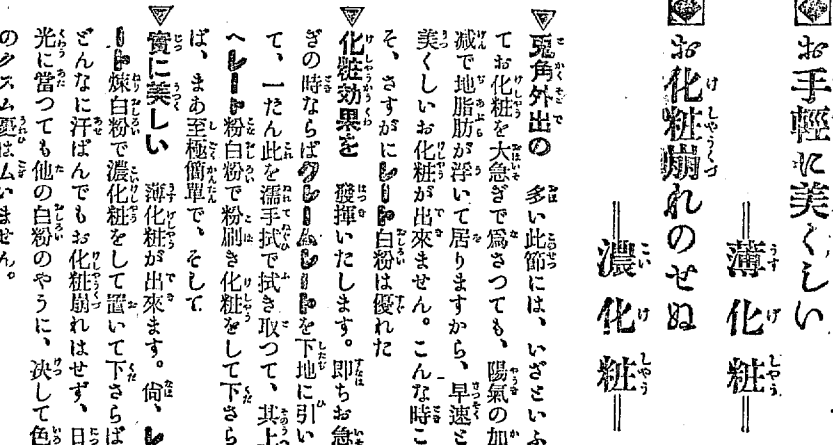 お手輕に美くしい
薄化粧
お化粧崩れのせぬ
濃化粧
兎角外出の 多い此節には、いざといふ
てお化粧を大急ぎで爲さつても、陽氣の加
减で地脂肪が浮いて居りますから、早速と
美くしいお化粧が出來ません。こんな時こ
そ、さすがにレート白粉は優れた
化粧効果を 發揮いたします。即ちお急
ぎの時ならばクレームレートを下地に引い
て、一たん此を濡手拭で拭き取つて、其上
へレート粉白粉で粉刷き化粧をして下さら
ば、まあ至極簡單で、そして
實に美しい 薄化粧が出來ます。尙、レ
ート煉白粉で濃化粧をして置いて下さらば
どんなに汗ばんでもお化粧崩れはせず、日
光に當つても他の白粉のやうに、決して色
のクスム憂はムいません。